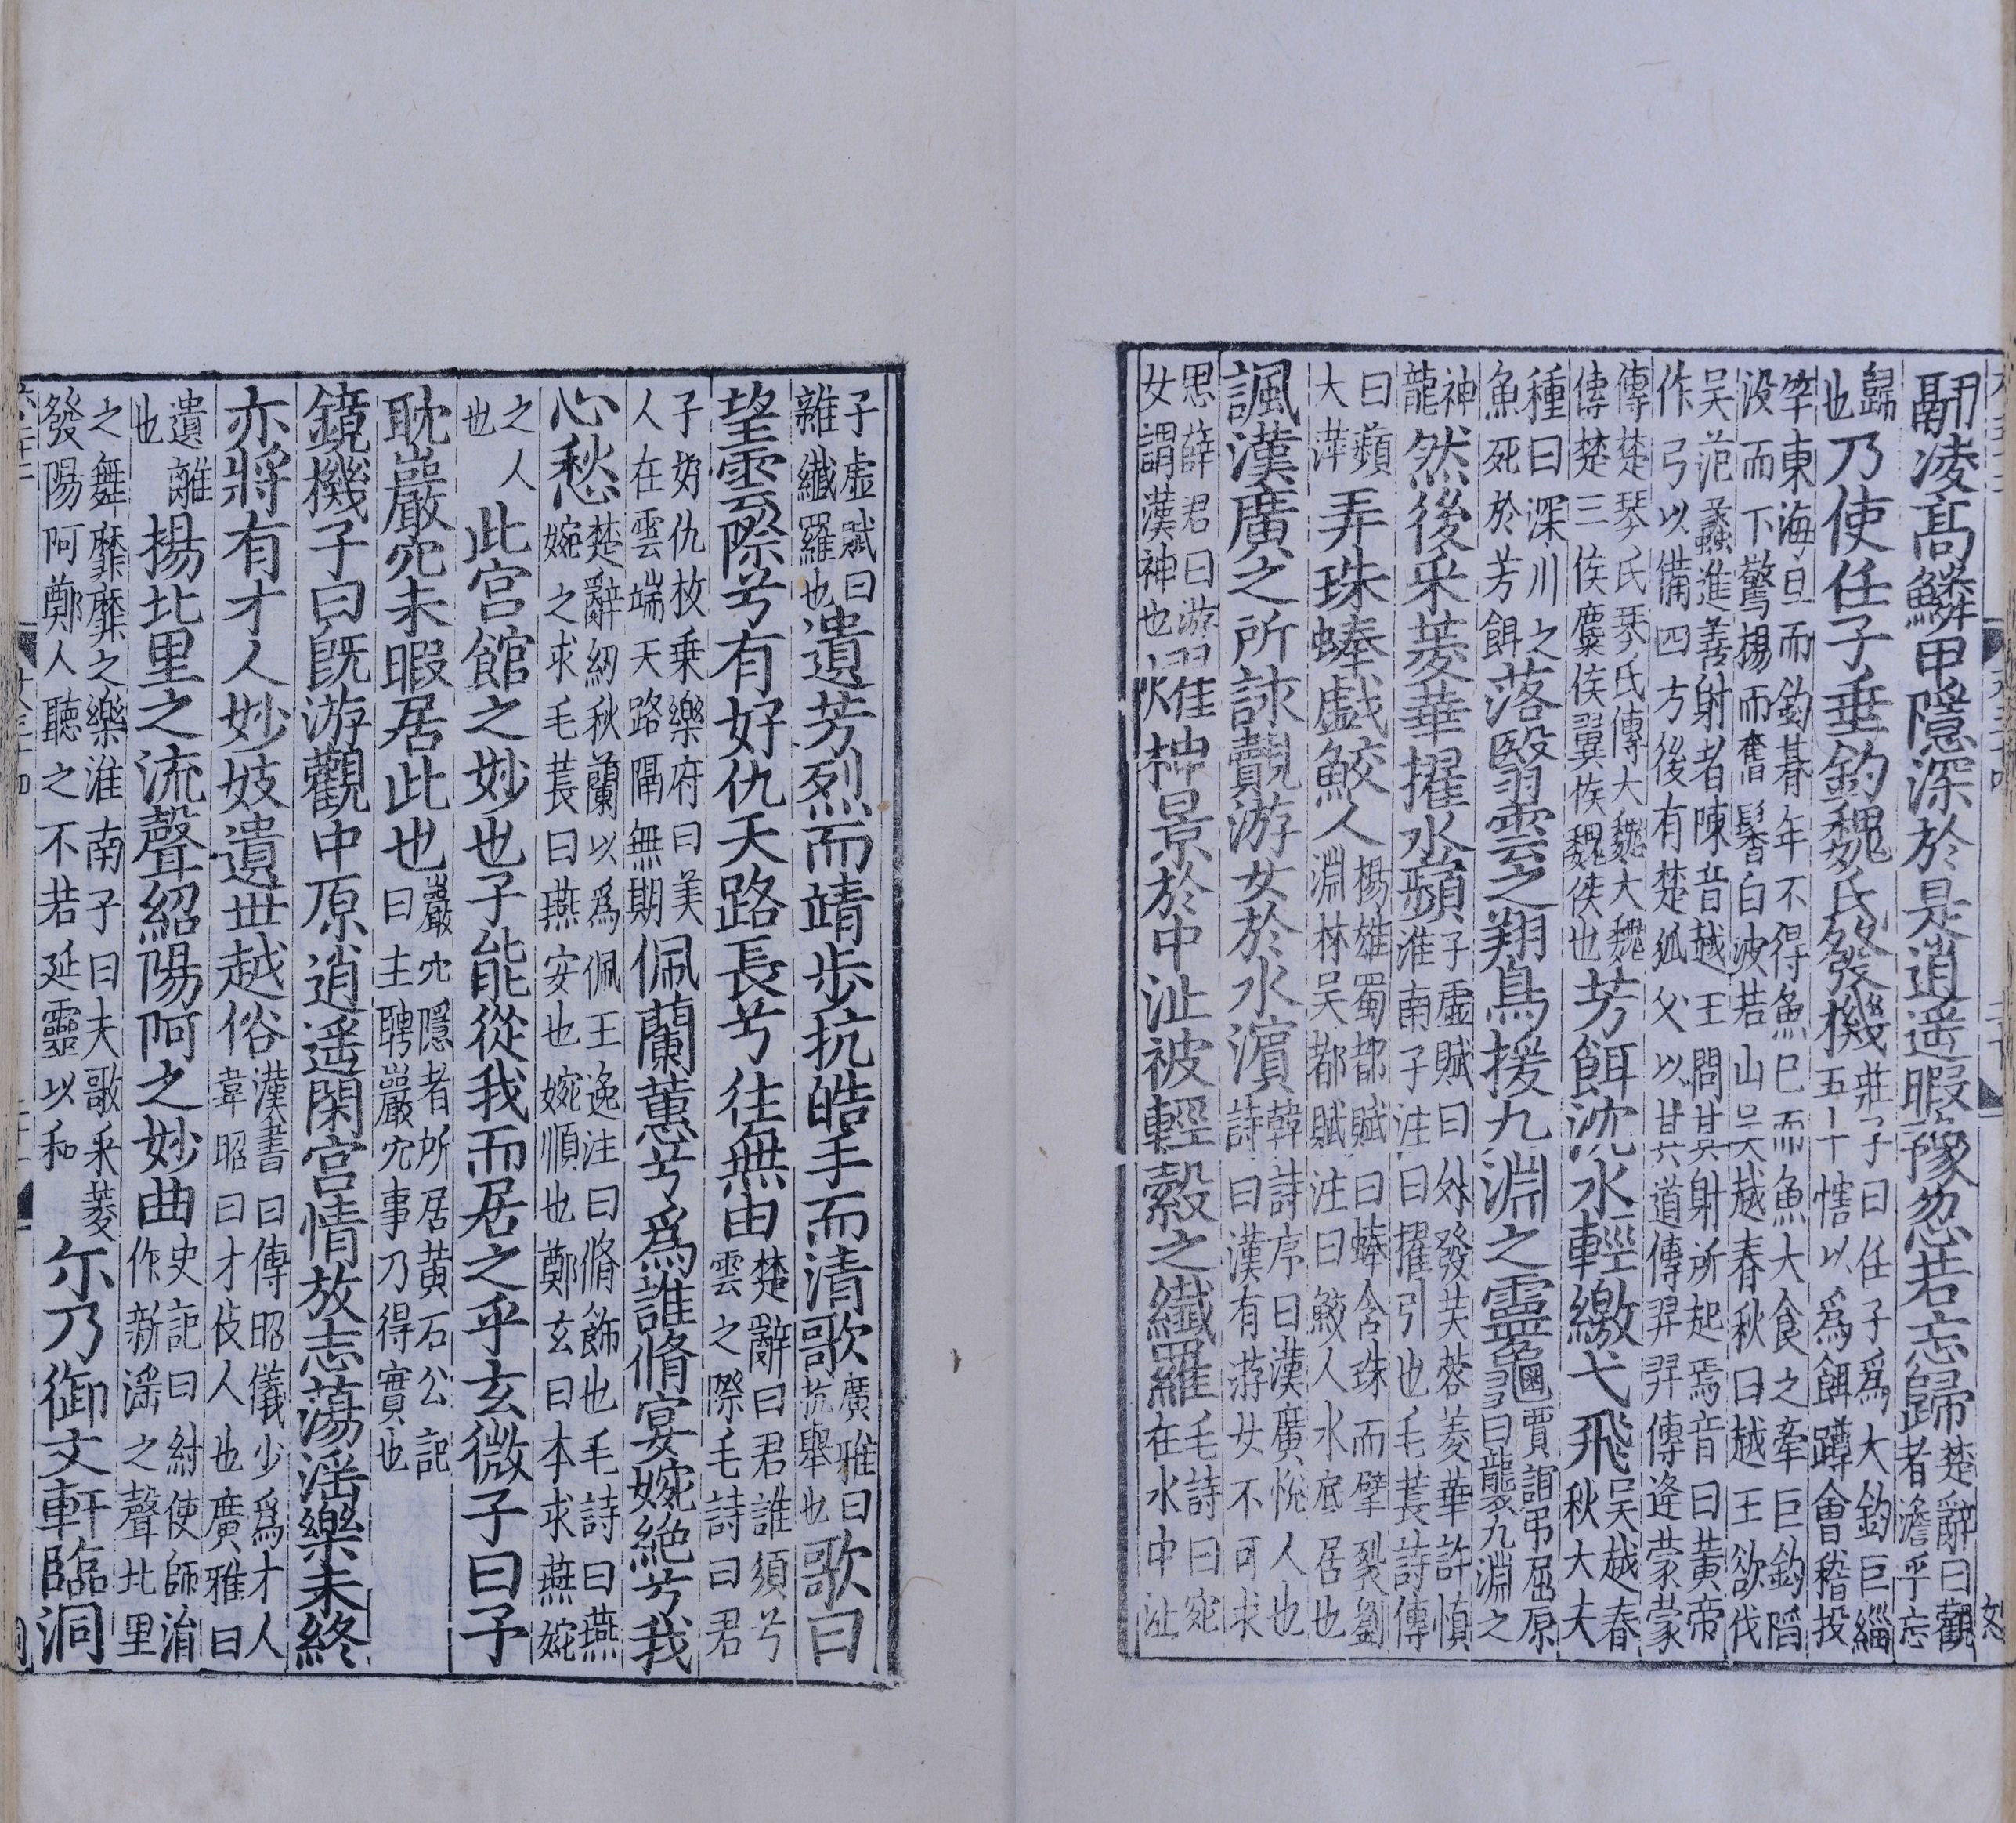 翩凌高鱗甲隱深於是逍遙暇豫忽若忘歸楚辭曰觀者憺乎忘
歸也乃使任子垂釣魏氏發機莊子曰任子爲大釣巨緇五十犗以爲餌蹲會稽投
竿東海旦而釣朞年不得魚巳而魚大食之牽巨釣䧟没而下驚揚而奮鬐白波若山吳越春秋曰越王欲伐
吴范蠡進善射者陳音越王問其射所起焉音曰黃帝作弓以備四方後有楚狐父以其道傳羿羿傳逄蒙蒙
傳楚琴氏琴氏傳大魏大魏傳楚三侯麋侯翼侯魏侯也芳餌沈水輕繳弋飛吴越春秋大夫
種曰深川之魚死於芳餌落翳雲之翔鳥援九淵之靈龜賈誼弔屈原曰龍襲九淵之
神龍然後采菱華擢水蘋子虛賦曰外發芙蓉菱華許慎淮南子注曰擢引也毛萇詩傳
曰蘋大蓱弄珠蜯戲鮫人楊雄蜀都賦曰蜯含珠而擘裂劉淵林吴都賦注曰鮫人水底居也
諷漢廣之所詠覿游女於水濱韓詩序曰漢廣恱人也詩曰漢有游女不可求
思薛君曰游女謂漢神也燿神景於中沚被輕縠之纖羅毛詩曰宛在水中沚
子虛賦曰雜纖羅也遺芳烈而靖歩抗皓手而清歌廣雅曰抗舉也歌曰
望雲際兮有好仇天路長兮往無由楚辭曰君誰須兮雲之際毛詩曰君
子好仇枚乗樂府曰美人在雲端天路隔無期佩蘭蕙兮爲誰脩宴婉絶兮我
心愁楚辭紉秋蘭以爲佩王逸注曰脩飾也毛詩曰燕婉之求毛萇曰燕安也婉順也鄭玄曰本求燕婉
之人也此宮館之妙也子能從我而居之乎玄微子曰子
耽巖穴未暇居此也巖穴隱者所居黃石公記曰主聘巖穴事乃得實也
鏡機子曰旣游觀中原逍遙閑宮情放志蕩滛樂未終
亦將有才人妙妓遺世越俗漢書曰傅昭儀少爲才人韋昭曰才伎人也廣雅曰
遺離也揚北里之流聲紹陽阿之妙曲史記曰紂使師涓作新滛之聲北里
之舞靡靡之樂淮南子曰夫歌采菱發陽阿鄭人聽之不若延靈以和尔乃御文軒臨洞